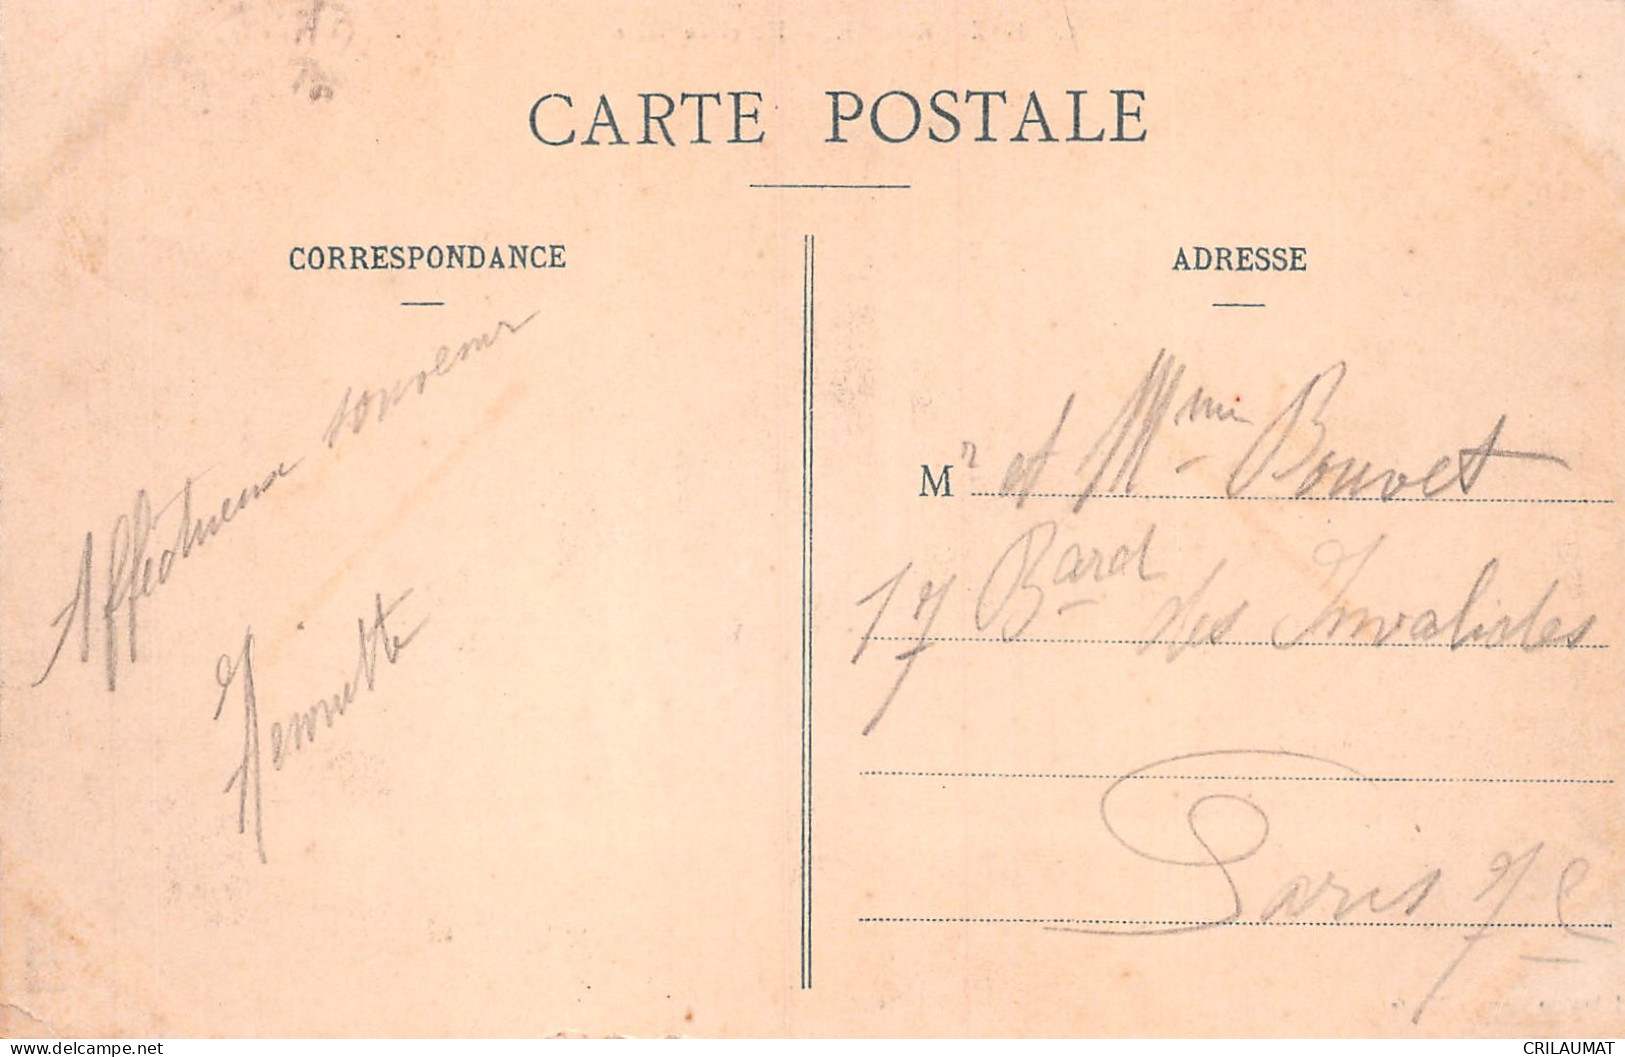 CARTE POSTALE
CORRESPONDANCE
Affectueux souvenir
ADRESSE
Mr et Mme Bouvet
17 Bard des Invalides
Paris 7e
CRILAUMAT